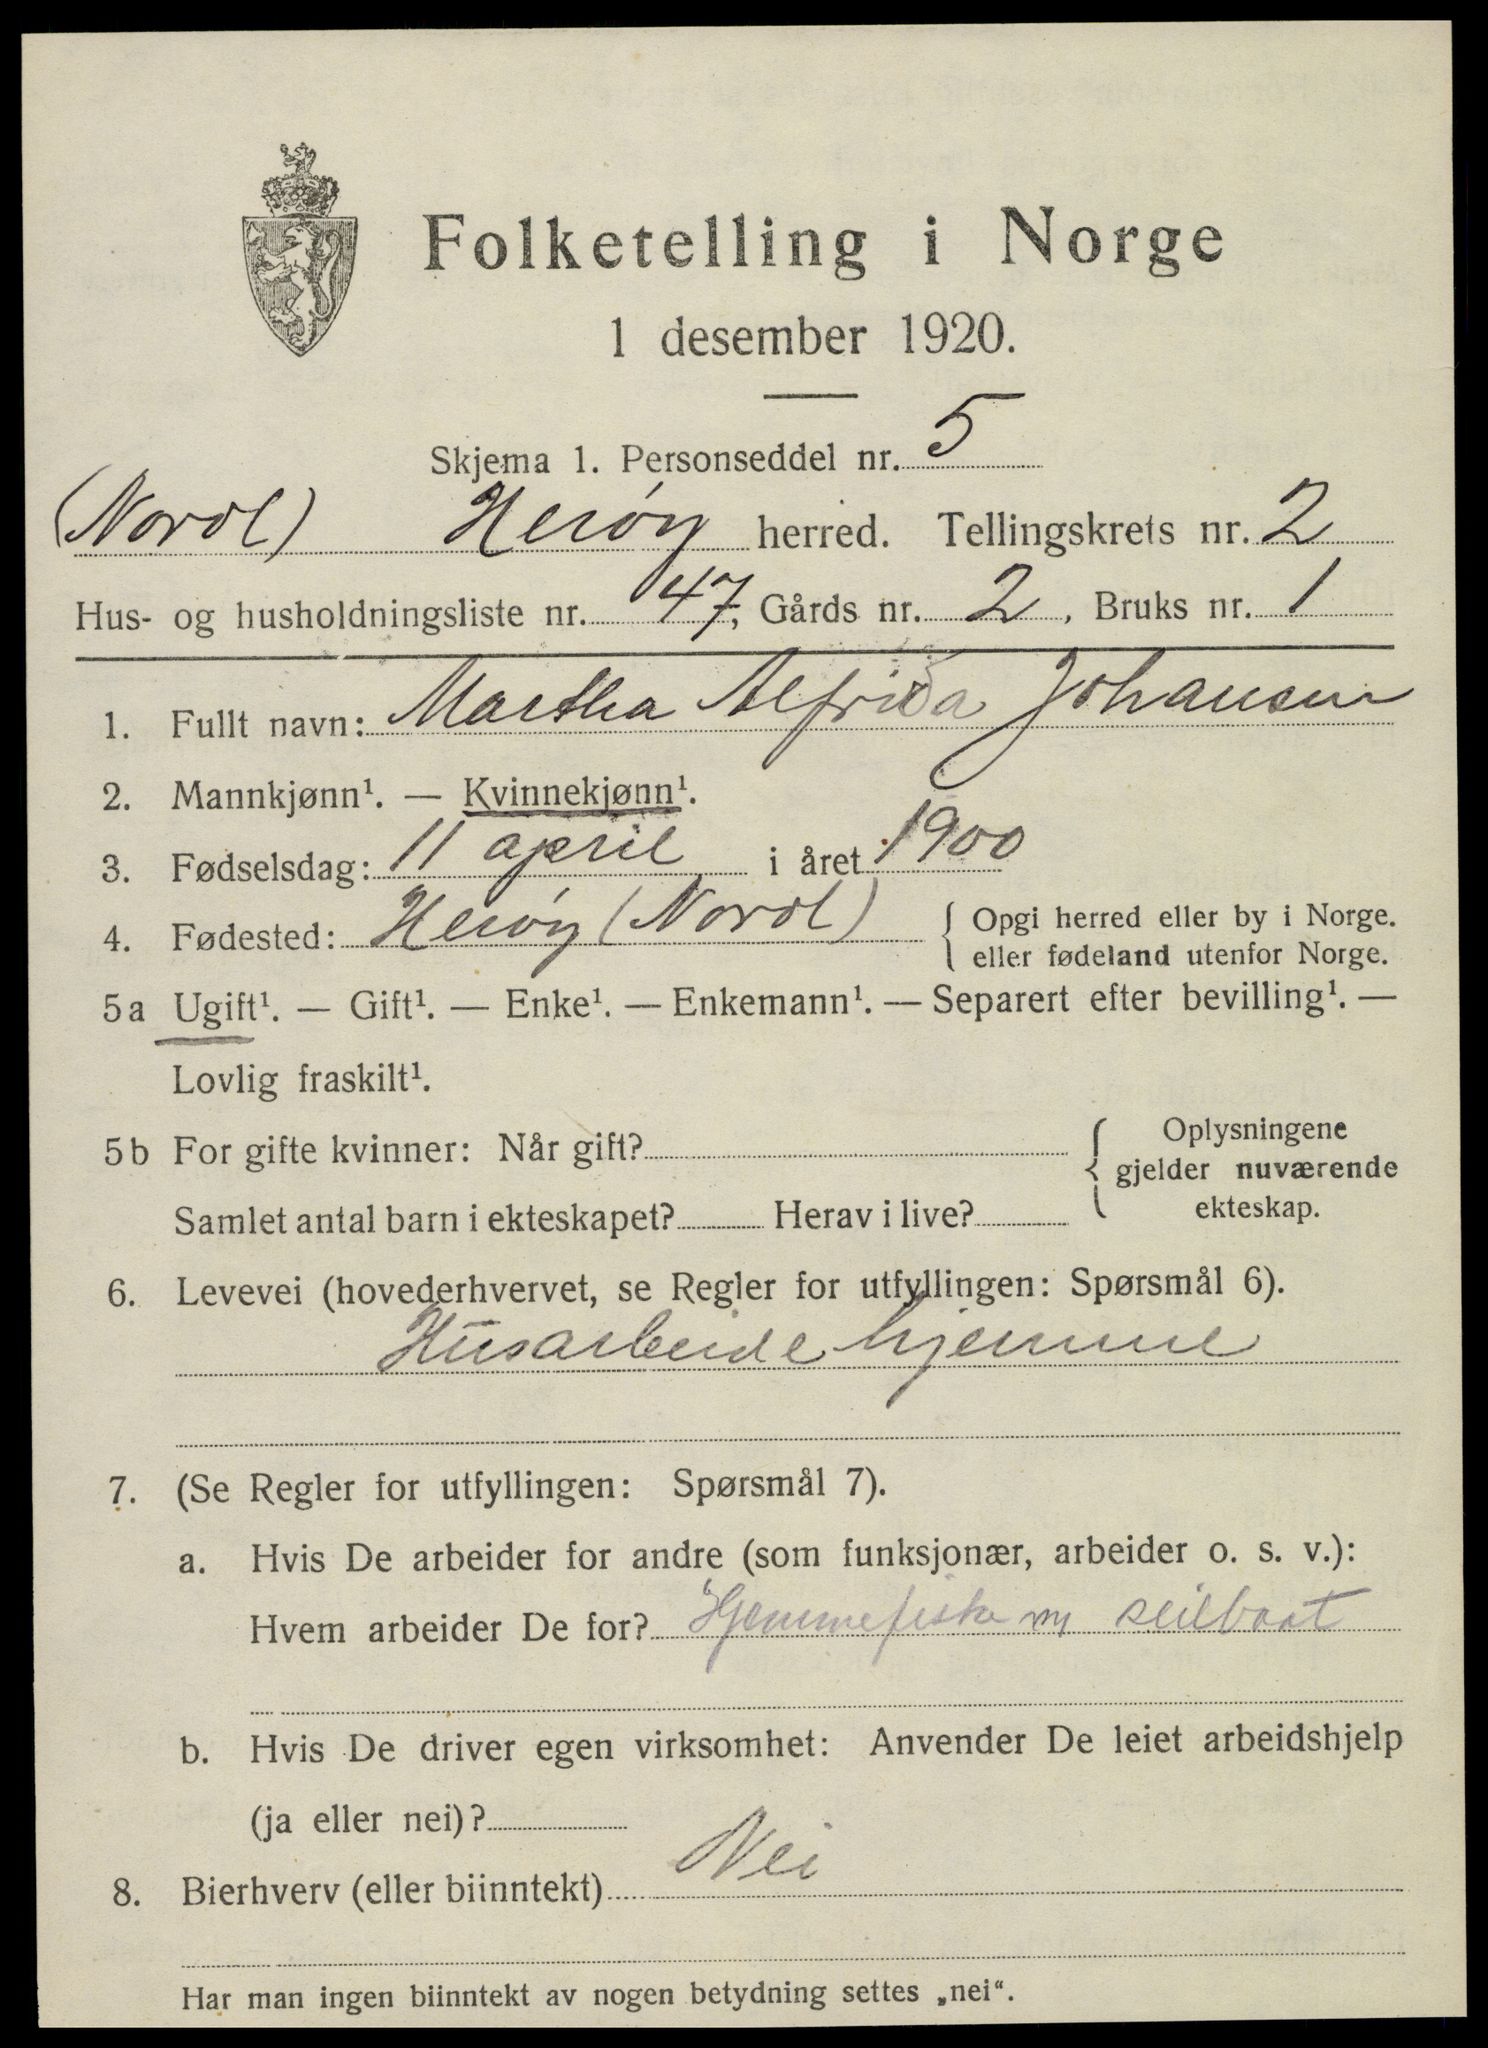 Folketelling i Norge
1 desember 1920.
Skjema 1. Personseddel nr. 5
(Nordl) Herøy herred. Tellingskrets nr. 2
Hus- og husholdningsliste nr. 47, Gårds nr. 2, Bruks nr. 1
1. Fullt navn: Martha Alfrida Johansen
2. Mannkjønn¹. — Kvinnekjønn¹.
3. Fødselsdag: 11 april i året 1900
4. Fødested: Herøy (Nordl) { Opgi herred eller by i Norge.
eller fødeland utenfor Norge.
5a Ugift¹. — Gift¹. — Enke¹. — Enkemann¹. — Separert efter bevilling¹. —
Lovlig fraskilt¹.
5b For gifte kvinner: Når gift? { Oplysningene
gjelder nuværende
Samlet antal barn i ekteskapet? Herav i live? ekteskap.
6. Levevei (hovederhvervet, se Regler for utfyllingen: Spørsmål 6).
Husarbeide hjemme
7. (Se Regler for utfyllingen: Spørsmål 7).
a. Hvis De arbeider for andre (som funksjonær, arbeider o. s. v.):
Hvem arbeider De for? Hjemmefiske m seilbaat
b. Hvis De driver egen virksomhet: Anvender De leiet arbeidshjelp
(ja eller nei)?
8. Bierhverv (eller biinntekt) Nei
Har man ingen biinntekt av nogen betydning settes „nei“.